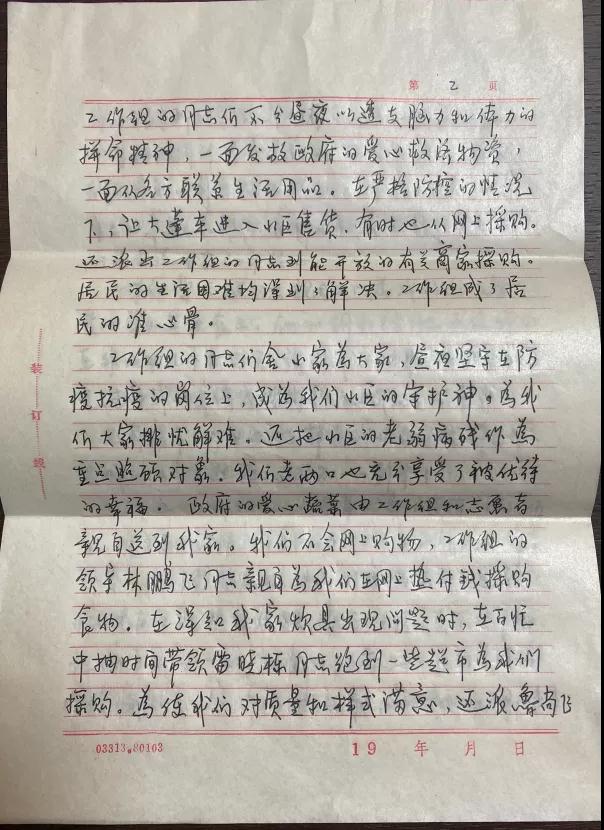 第 2 页
工作组的同志们不分昼夜以透支脑力和体力的
拼命精神，一面发放政府的爱心救济物资，
一面从各方联系生活用品。在严格防控的情况
下，让大蓬车进入小区售货，有时也从网上採购。
还派出工作组的同志到能开放的有关商家採购。
居民的生活困难均得到了解决。工作组成了居
民的准心骨。
工作组的同志们舍小家为大家，昼夜坚守在防
疫抗疫的岗位上，成为我们小区的守护神。为我
们大家排忧解难。还把小区的老弱病残作为
重点照顾对象。我们老两口也充分享受了被优待
的幸福。政府的爱心蔬菜由工作组和志愿者
亲自送到我家。我们不会网上购物，工作组的
领导林鹏飞同志亲自为我们在网上垫付钱採购
食物。在得知我家炊具出现问题时，在百忙
中抽时间带领雷晓栋同志跑到一些超市为我们
採购。为使我们对质量和样式满意，还派鲁尚飞
装
订
线
03313.80103
19 年 月 日